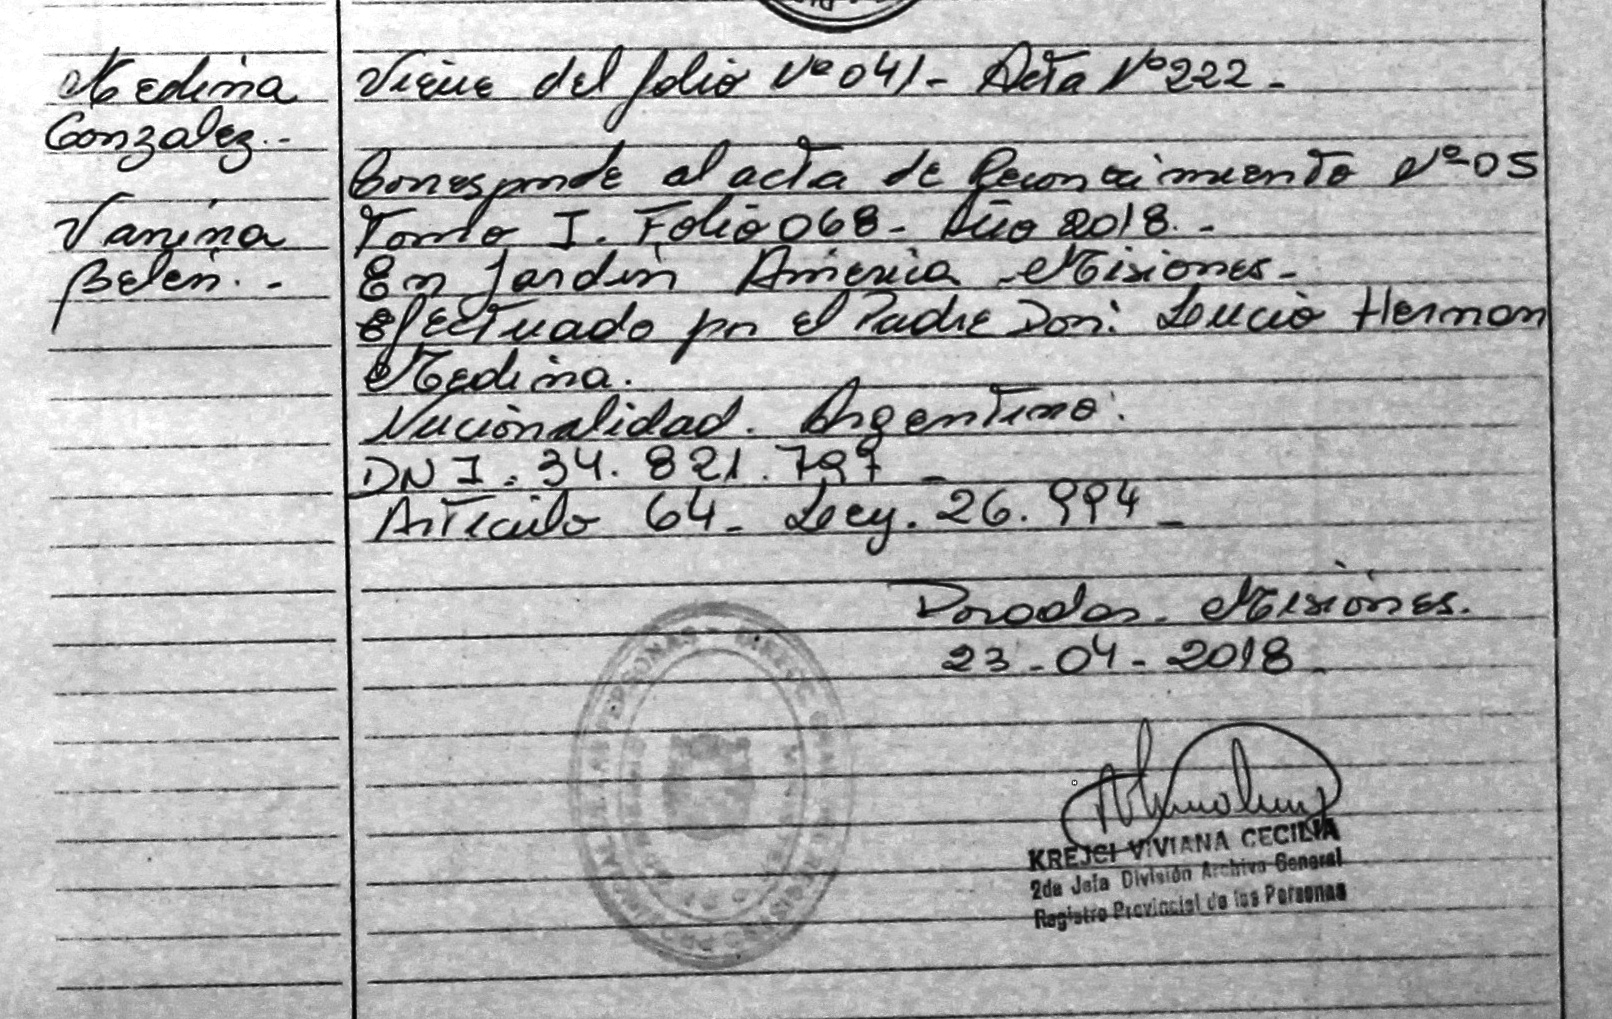 Medina
Gonzalez.-
Vanina
Belén.-
Viene del folio Nº 041- Acta Nº 222-
Corresponde al acta de Reconocimiento Nº 05
Tomo I. Folio 068- Año 2018.-
En Jardín América Misiones-
efectuado por el Padre Don: Lucio Hernan
Medina.
Nacionalidad. Argentino.
DNI. 34.821.797-
Artículo 64- Ley. 26.994-
Posadas. Misiones.
23-04-2018-
KREJCI VIVIANA CECILIA
2da Jefa División Archivo General
Registro Provincial de las Personas